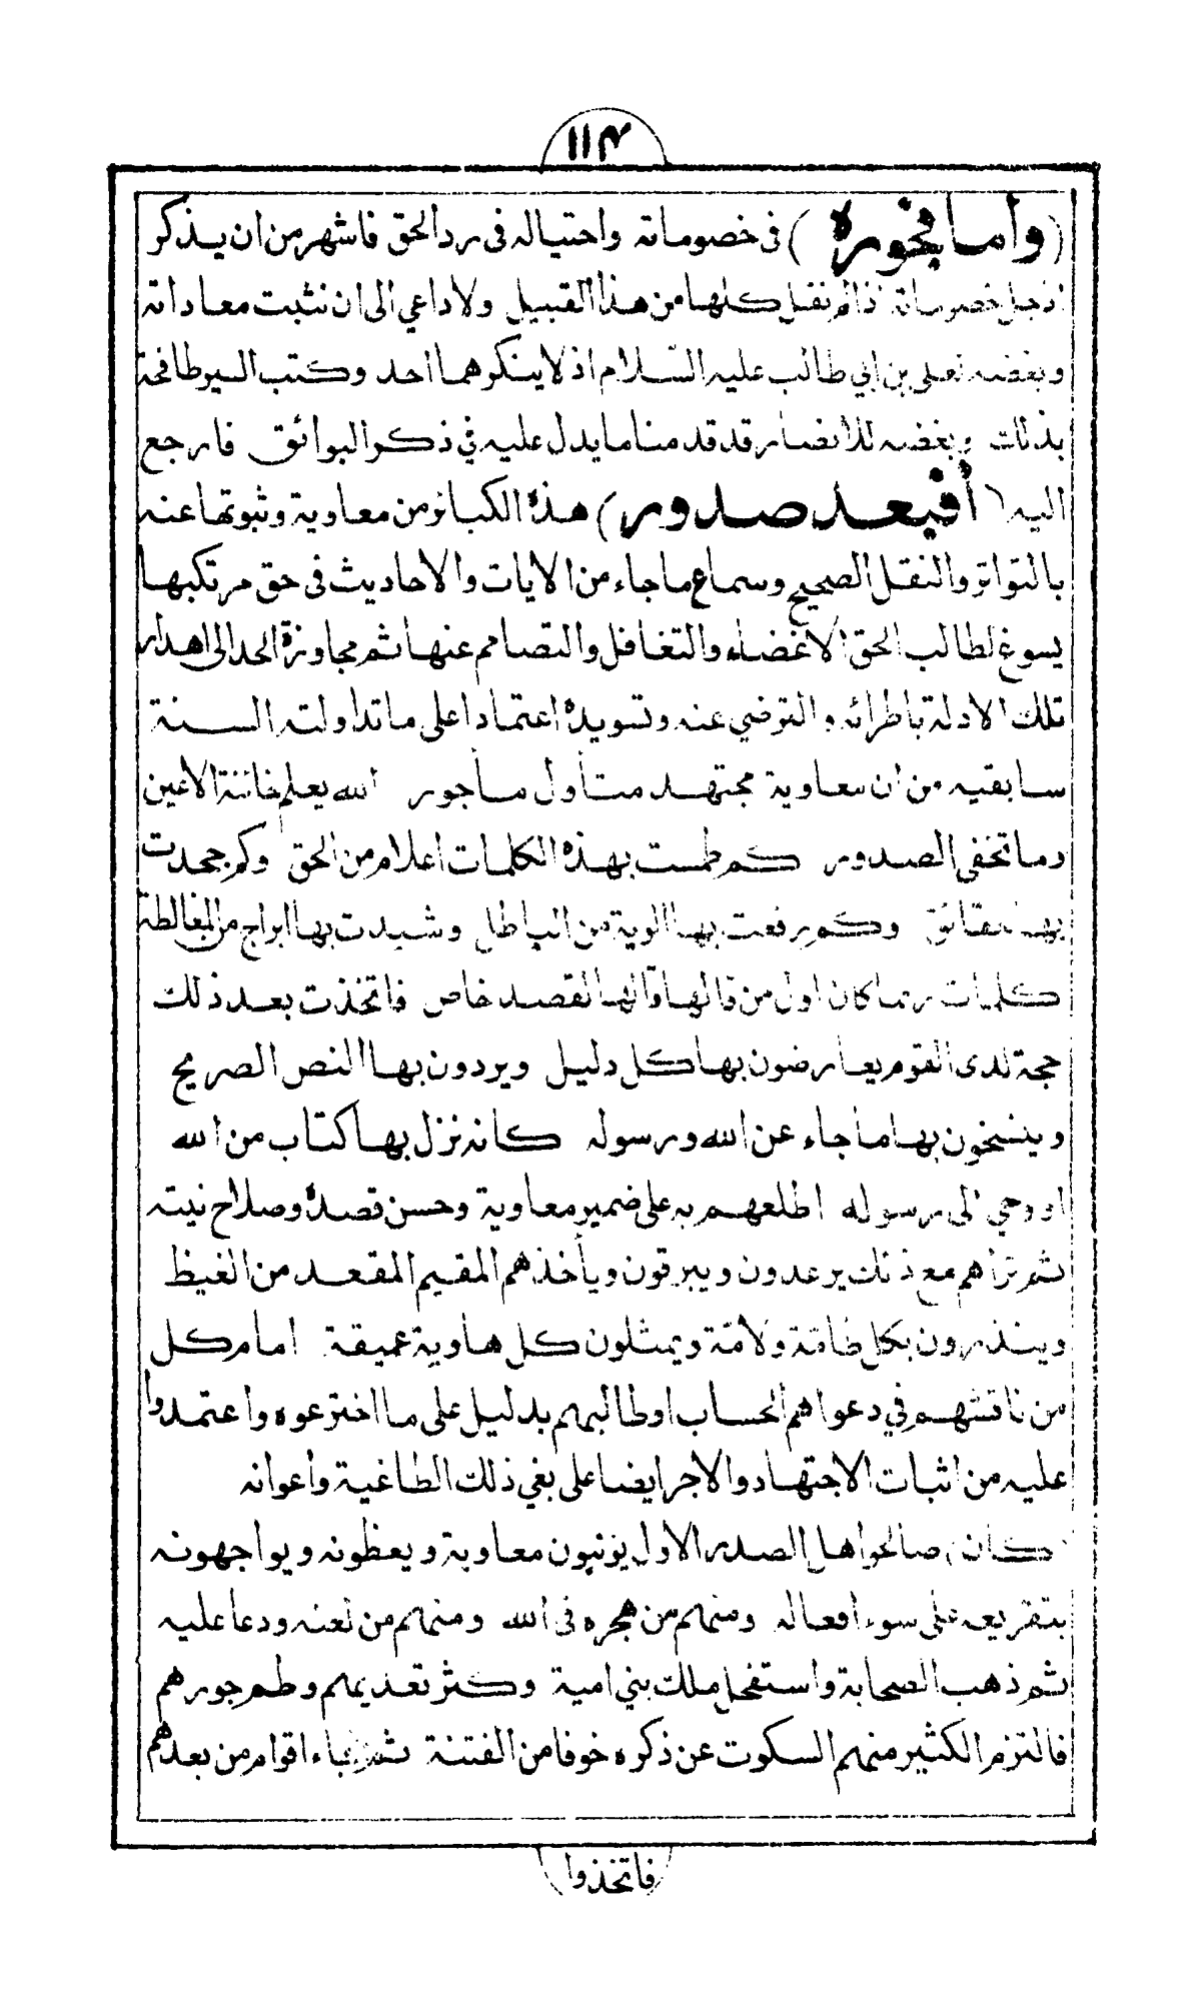 ١١٤
(وأما فجوره) في خصوماته واحتياله في رد الحق فاشهر من ان يذكر
اذ جل خصوماته اذا لم نقل كلها من هذا القبيل ولا داعي الى ان نثبت معاداته
وبغضه لعلي بن ابي طالب عليه السّلام اذ لا ينكرهما احد وكتب السير طافحة
بذلك وبغضه للانصار قد قدمنا ما يدل عليه في ذكر البوائق فارجع
اليه (أفبعد صدور) هذه الكبائر من معاوية وثبوتها عنه
بالتواتر والنقل الصحيح وسماع ما جاء من الايات والاحاديث في حق مرتكبها
يسوغ لطالب الحق الاغضاء والتغافل والتصامم عنها ثم مجاوزة الحد الى اهدار
تلك الادلة باطرائه والترضي عنه وتسويده اعتمادا على ما تداولته السنة
سابقيه من ان معاوية مجتهد متأول مأجور الله يعلم خائنة الاعين
وما تخفى الصدور كم طمست بهذه الكلمات اعلام من الحق وكم جحدت
بها حقائق وكم رفعت بها الوية من الباطل وشيدت بها ابراج من المغالطة
كلمات ربما كان اول من قالها قالها لقصد خاص فاتخذت بعد ذلك
حجة لدى القوم يعارضون بها كل دليل ويردون بها النص الصريح
وينسخون بها ما جاء عن الله ورسوله كانه نزل بها كتاب من الله
او وحي الى رسوله اطلعهم به على ضمير معاوية وحسن قصده وصلاح نيته
ثم تراهم مع ذلك يرعدون ويبرقون ويأخذهم المقيم المقعد من الغيظ
وينذرون بكل طامّة ولامّة ويمثلون كل هاوية عميقة امام كل
من ناقشهم في دعواهم الحساب او طالبهم بدليل على ما اخترعوه واعتمدوا
عليه من اثبات الاجتهاد والاجر ايضا على بغي ذلك الطاغية وأعوانه
كان صالحوا هل الصدر الاول يؤنبون معاوية ويعظونه ويواجهونه
بتقريعه على سوء افعاله ومنهم من هجره في الله ومنهم من لعنه ودعا عليه
ثم ذهب الصحابة واستفحل ملك بني امية وكثر تعديهم وطم جورهم
فالتزم الكثير منهم السكوت عن ذكره خوفا من الفتنة ثم جاء اقوام من بعدهم
فاتخذوا